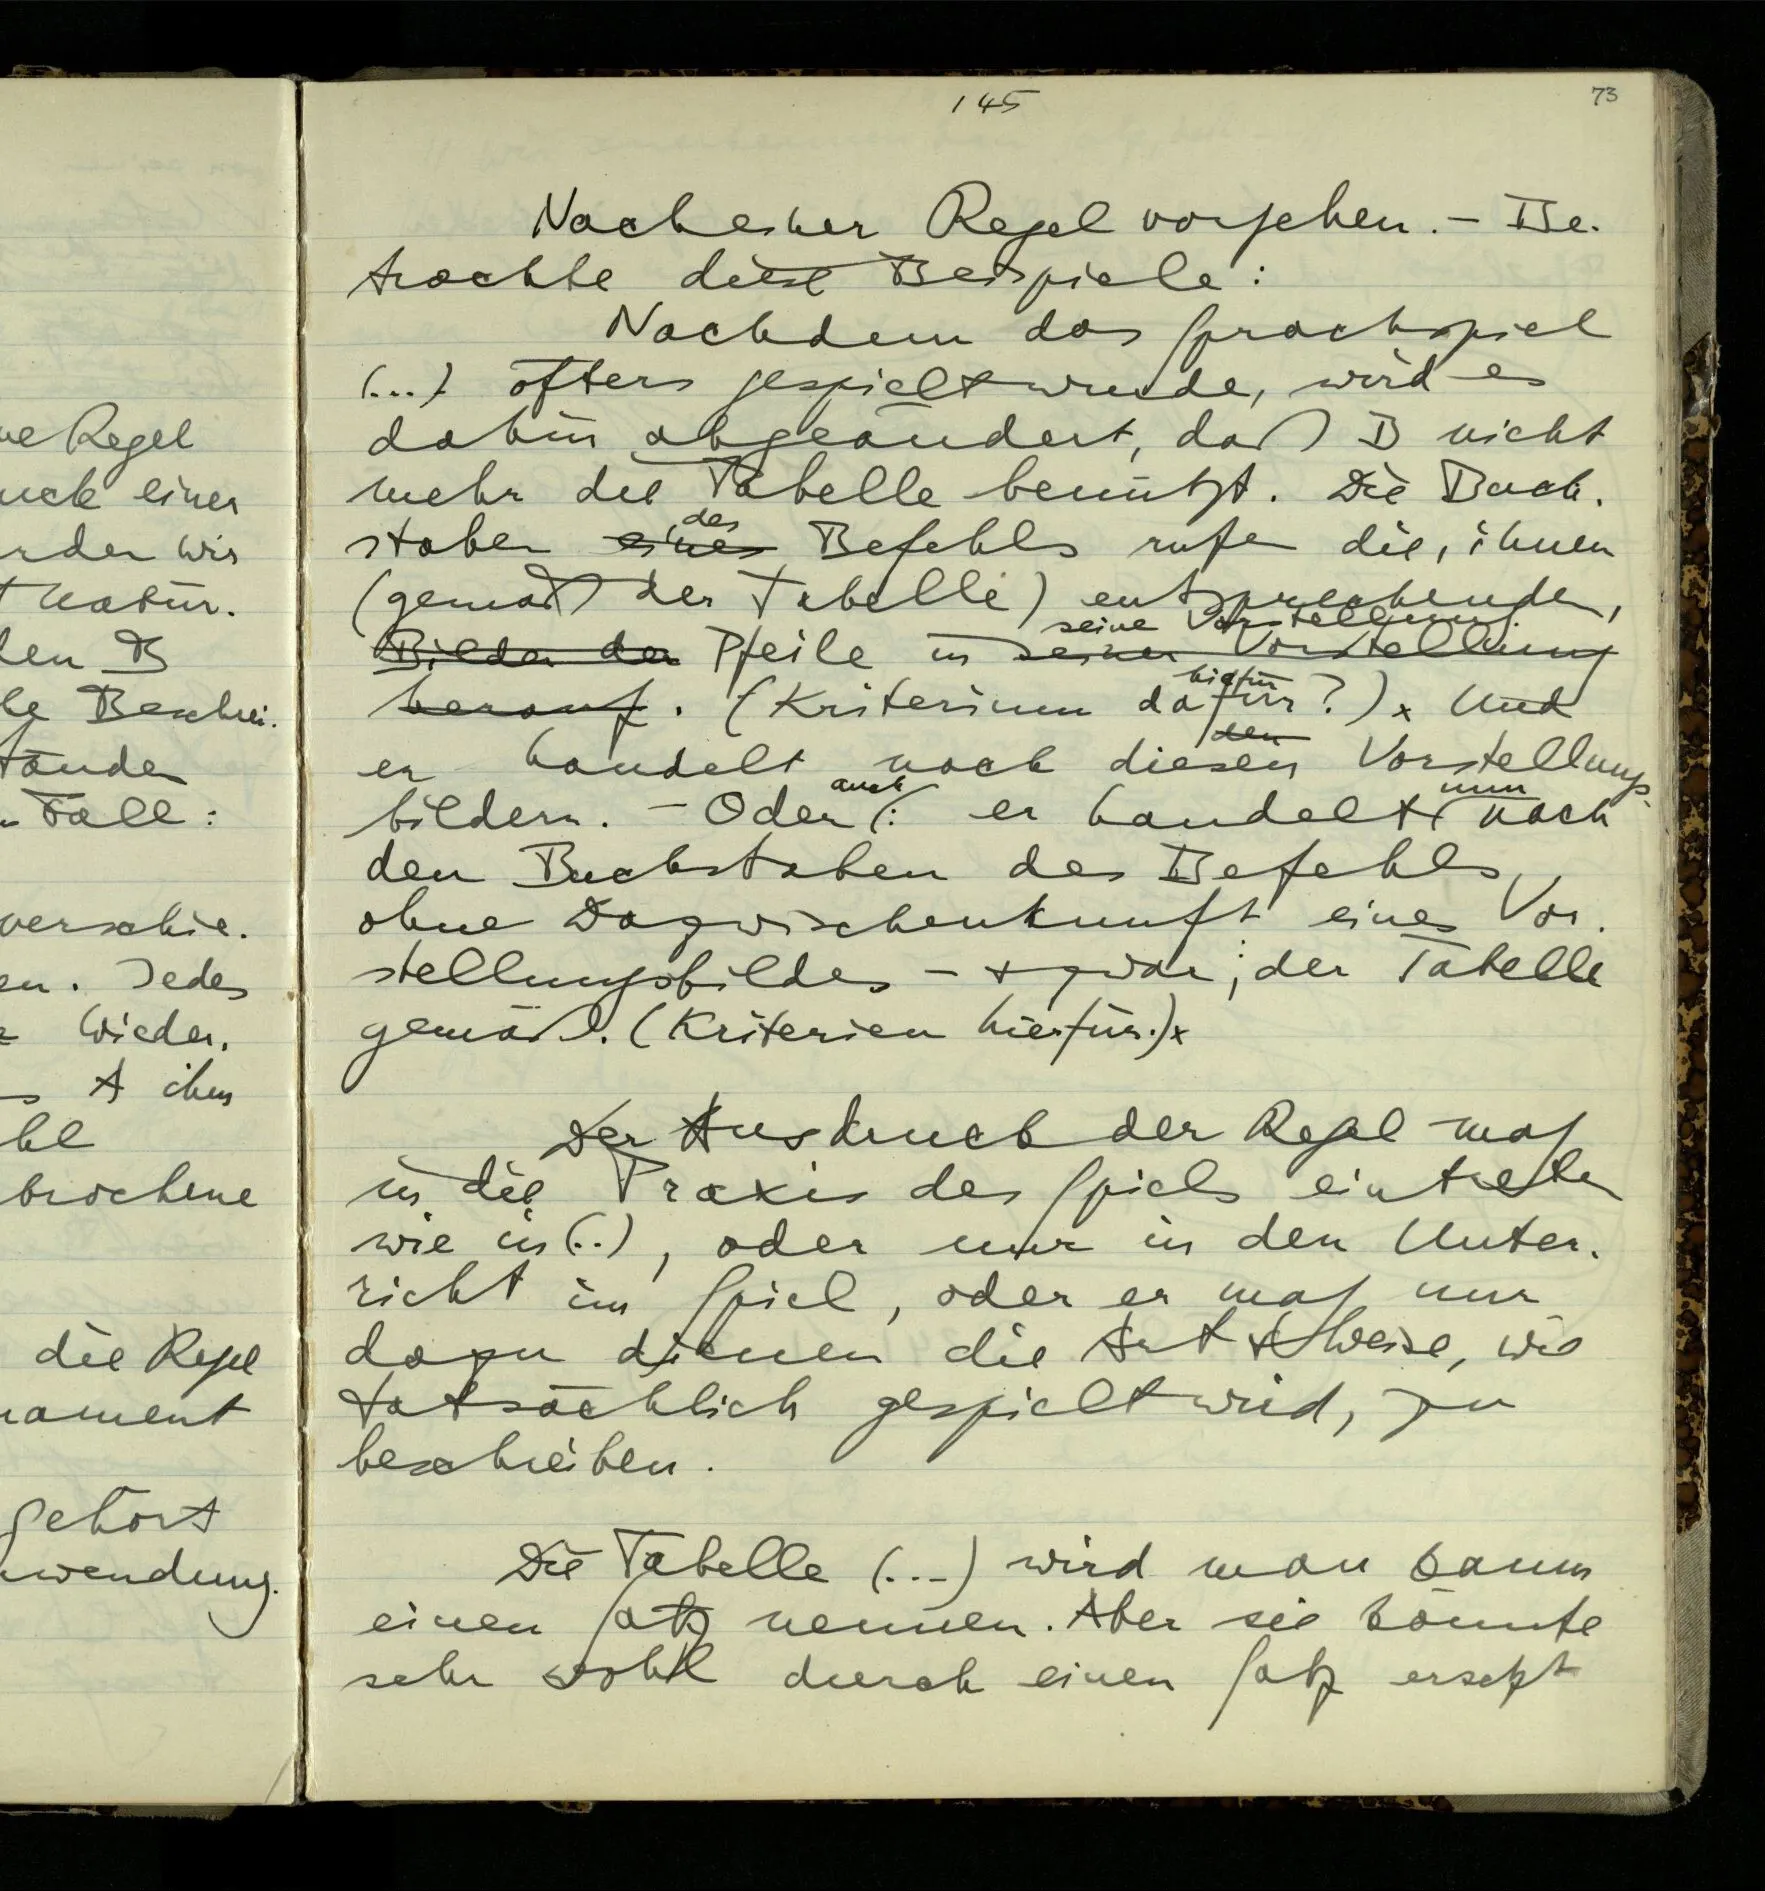 145
73
Nach einer Regel vorgehen. – Be-
trachte diese Beispiele:
Nachdem das Sprachspiel
(...) öfters gespielt wurde, wird es
dahin abgeändert, daß B nicht
mehr die Tabelle benützt. Die Buch-
des
staben eines Befehls rufen die, ihnen
(gemäß der Tabelle) entsprechenden,
seine Vorstellung
Bilder der Pfeile in seiner Vorstellung
hiefür
herauf. (Kriterium dafür?)x Und
den
er handelt nach diesen Vorstellungs-
auch nun
bildern. – Oder (: er handelt ( nach
den Buchstaben des Befehls
ohne Dazwischenkunft eines Vor-
stellungsbildes – + zwar; der Tabelle
gemäß. (Kriterien hierfür.)x
Der Ausdruck der Regel mag
in die Praxis des Spiels eintreten
wie in (..), oder nur in den Unter-
richt im Spiel, oder er mag nur
dazu dienen die Art + Weise, wie
tatsächlich gespielt wird, zu
beschreiben.
Die Tabelle (...) wird man kaum
einen Satz nennen. Aber sie könnte
sehr wohl durch einen Satz ersetzt
ne Regel
uck einer
rden wir
t natür-
den B
le Beschrei-
tände
Fall:
verschie-
en. Jedes
Wieder-
s A ihm
hl
brochene
die Regel
nament
gehört
wendung.